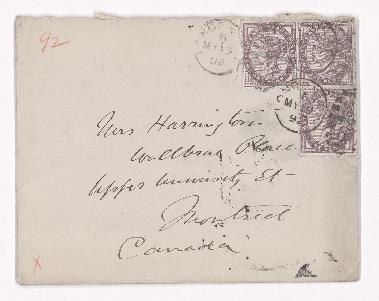 92
LONDON
MY 19
92
MY
92
Mrs Harrington
Wallbrae Place
Upper University St
Montreal
Canada
X